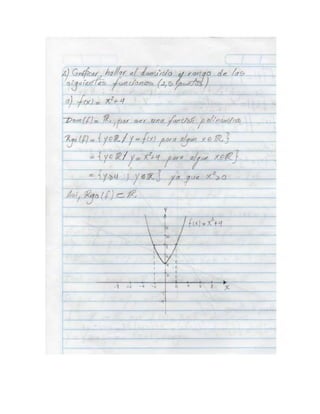 2) Graficar, hallar el dominio y rango de las
siguientes funciones (2,5 puntos)
a) f(x) = x²+4
Dom(f) = ℝ, por ser una función polinomica
Rgo(f) = { y∈ℝ / y = f(x) para algun x∈ℝ }
= { y∈ℝ / y = x²+4 para algun x∈ℝ }
= { y≥4 ; y∈ℝ } ya que x²≥0
Asi, Rgo(f) ⊂ ℝ.
Y
f(x) = x²+4
X